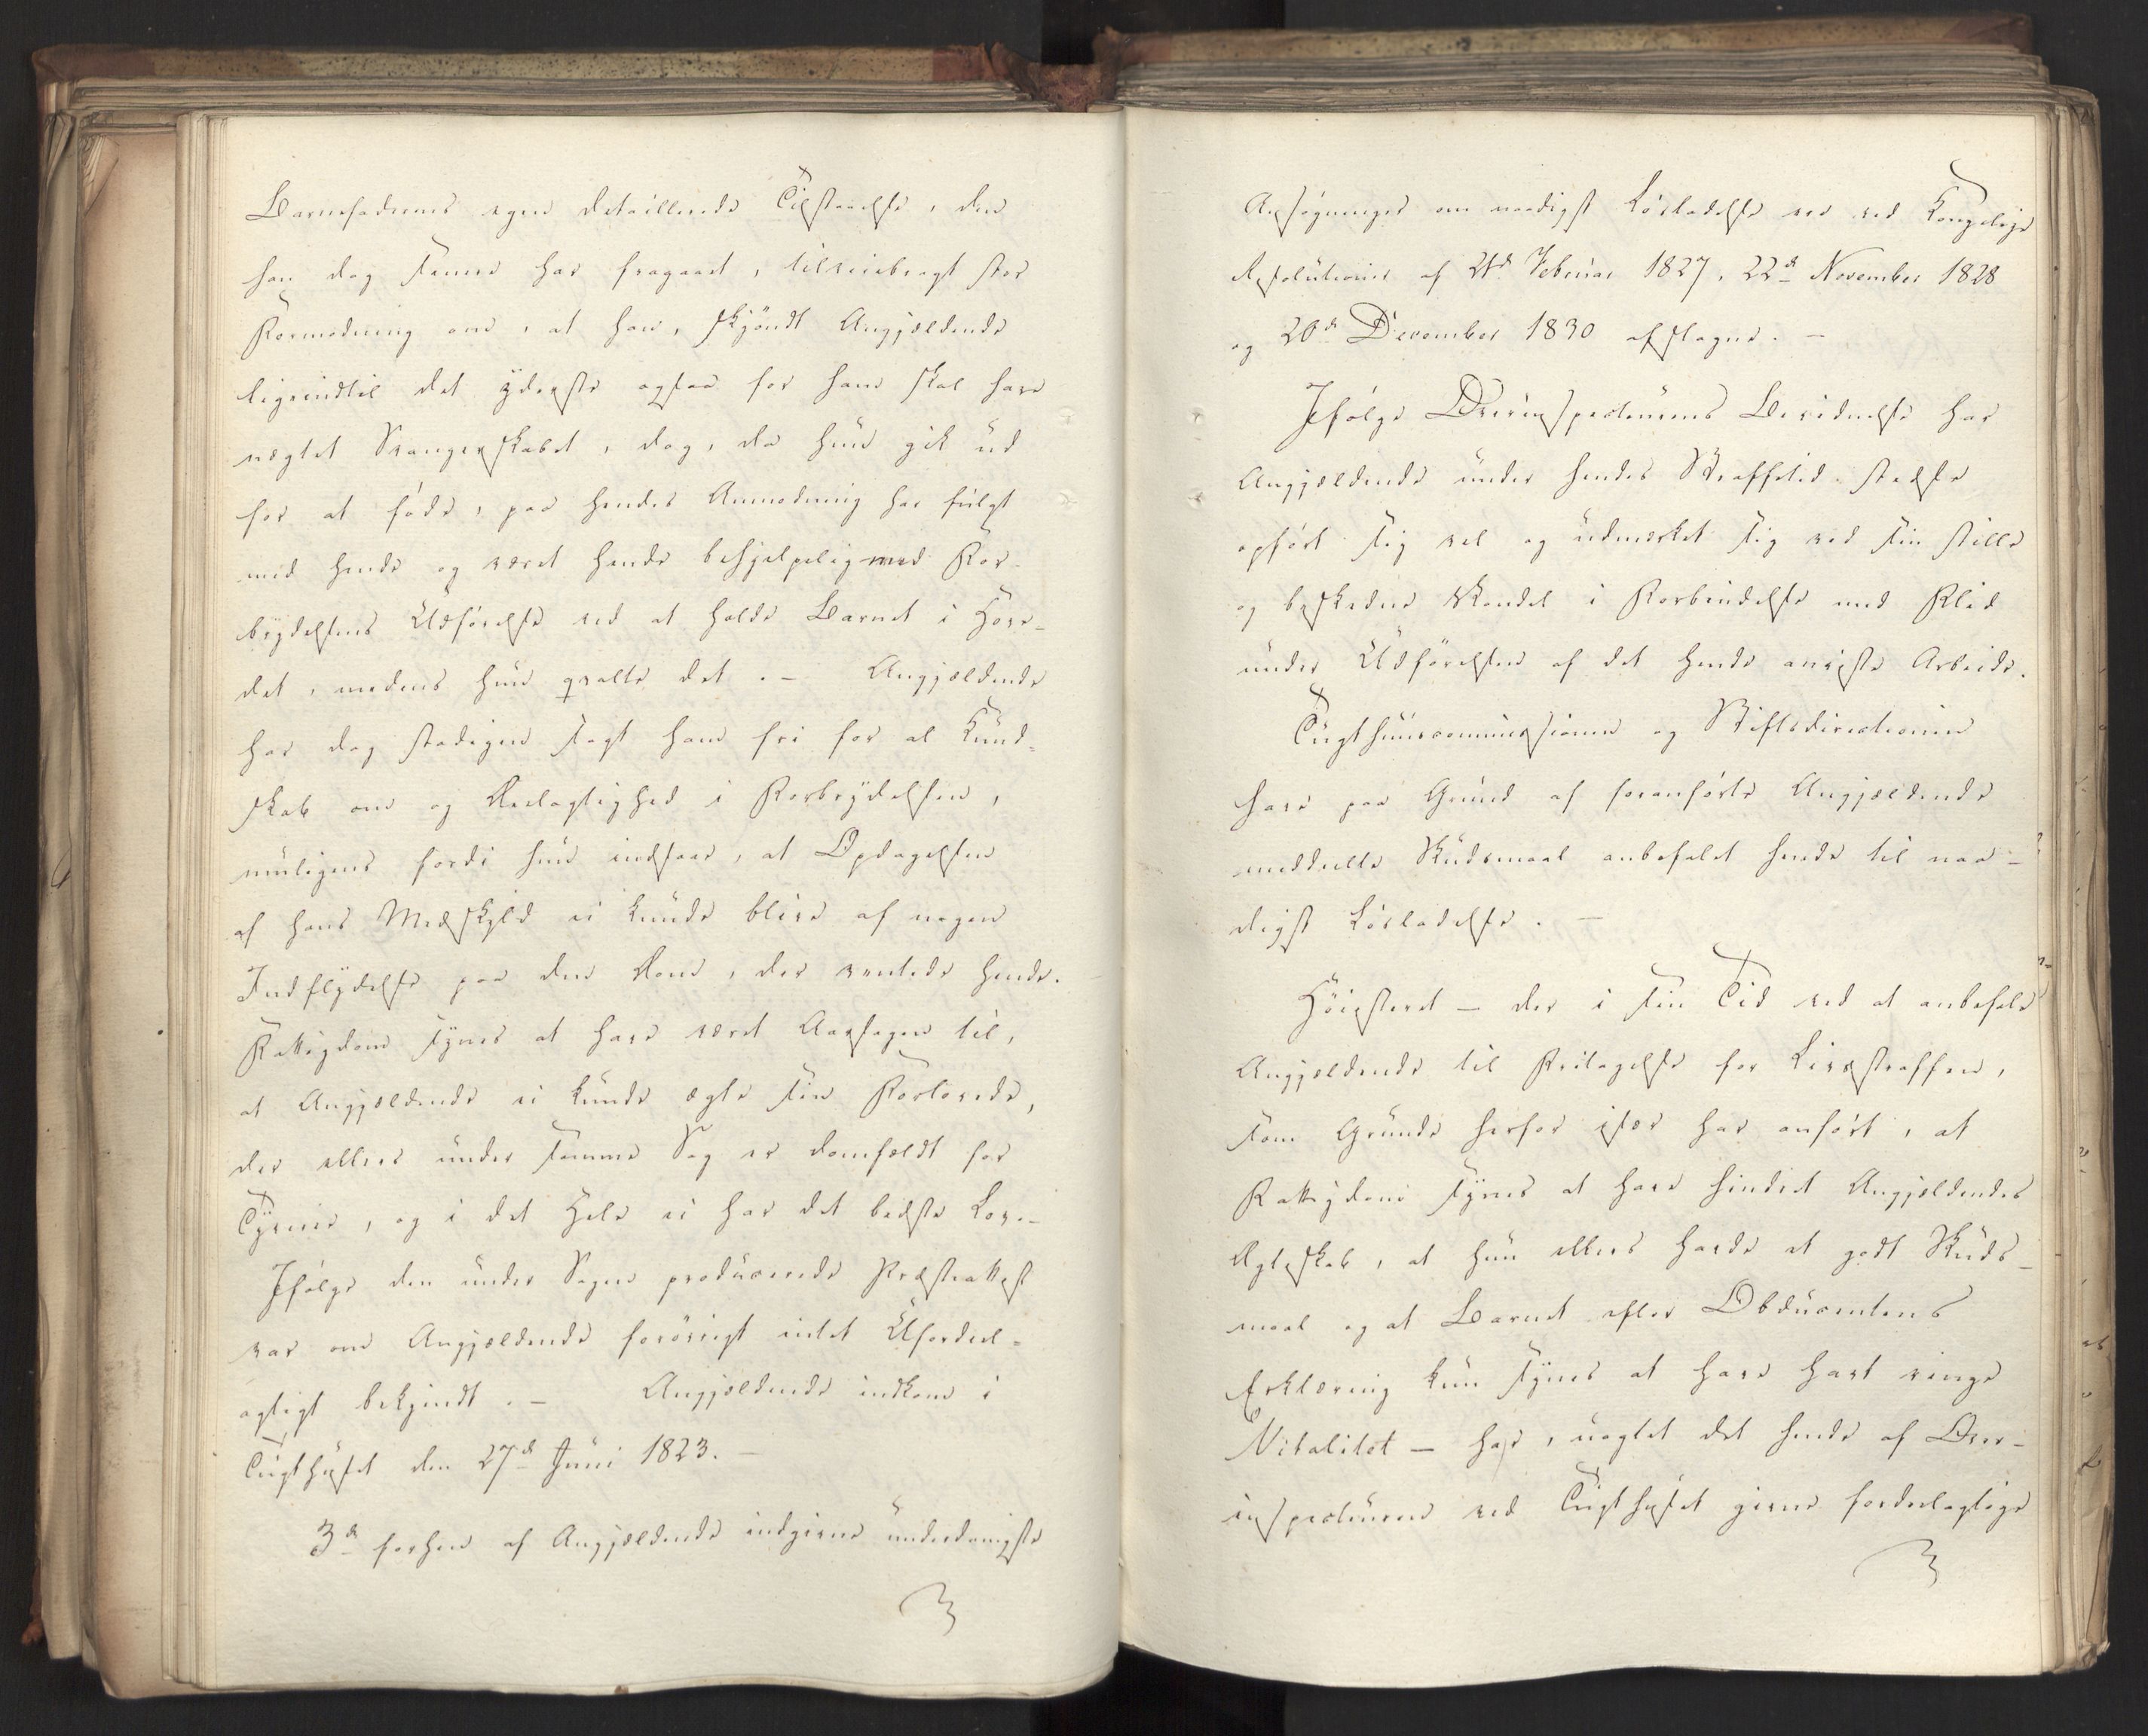 Barnefaderens egen detaillerede Tilstaaelse, den
han dog senere har fragaaet, tilveiebragt stor
Formodning om, at han, skjöndt Angjældende
ligeindtil det yderste ogsaa for ham skal have
nægtet Svangerskabet, dog, da hun gik ud
for at föde, paa hendes Anmodning har fulgt
med hende og været hende behjelpelig med For-
brydelsens Udförelse ved at holde Barnet i Hove-
det, medens hun qvalte det. – Angjældende
har dog stadigen sagt ham fri for al Kund-
skab om og Deelagtighed i Forbrydelsen,
muligens fordi hun indsaae, at Opdagelsen
af hans Medskyld ei kunde blive af nogen
Indflydelse paa den Dom, der ventede hende.
Fattigdom synes at have været Aarsagen til,
at Angjældende ei kunde ægte sin Forlovede,
der ellers under samme Sag er domfældt for
Tyverie, og i det Hele ei har det bedste Lov. –
Ifölge den under Sagen producerede Præsteattest
var om Angjældende forövrigt intet Ufordeel-
agtigt bekjendt. – Angjældende indkom i
Tugthuset den 27de Juni 1823. –
3de forhen af Angjældende indgivne underdanigste
Ansögninger om naadigst Lösladelse ere ved Kongelige
Resolutioner af 21de Februar 1827, 22de November 1828
og 20de December 1830 afslagne. –
Ifölge Overinspecteurens Beretning har
Angjældende under hendes Straffetid stedse
opfört sig vel og udmærket sig ved sin stille
og beskedne Vandel i Forbindelse med Flid
under Udförelsen af det hende anviste Arbeide.
Tugthuuscommissionen og Stiftsdirectionen
have paa Grund af foranförte Angjældende
meddeelte Skudsmaal anbefalet hende til naa-
digst Lösladelse. –
Höiesteret – der i sin Tid ved at anbefale
Angjældende til Fritagelse for Livsstraffen,
som Grunde herfor især har anfört, at
Fattigdom synes at have hindret Angjældendes
Ægteskab, at hun ellers havde et godt Skuds-
maal og at Barnet efter Obducentens
Erklæring kun synes at have havt ringe
Vitalitet – har, uagtet det hende af Over-
inspecteuren ved Tugthuset givne fordeelagtige